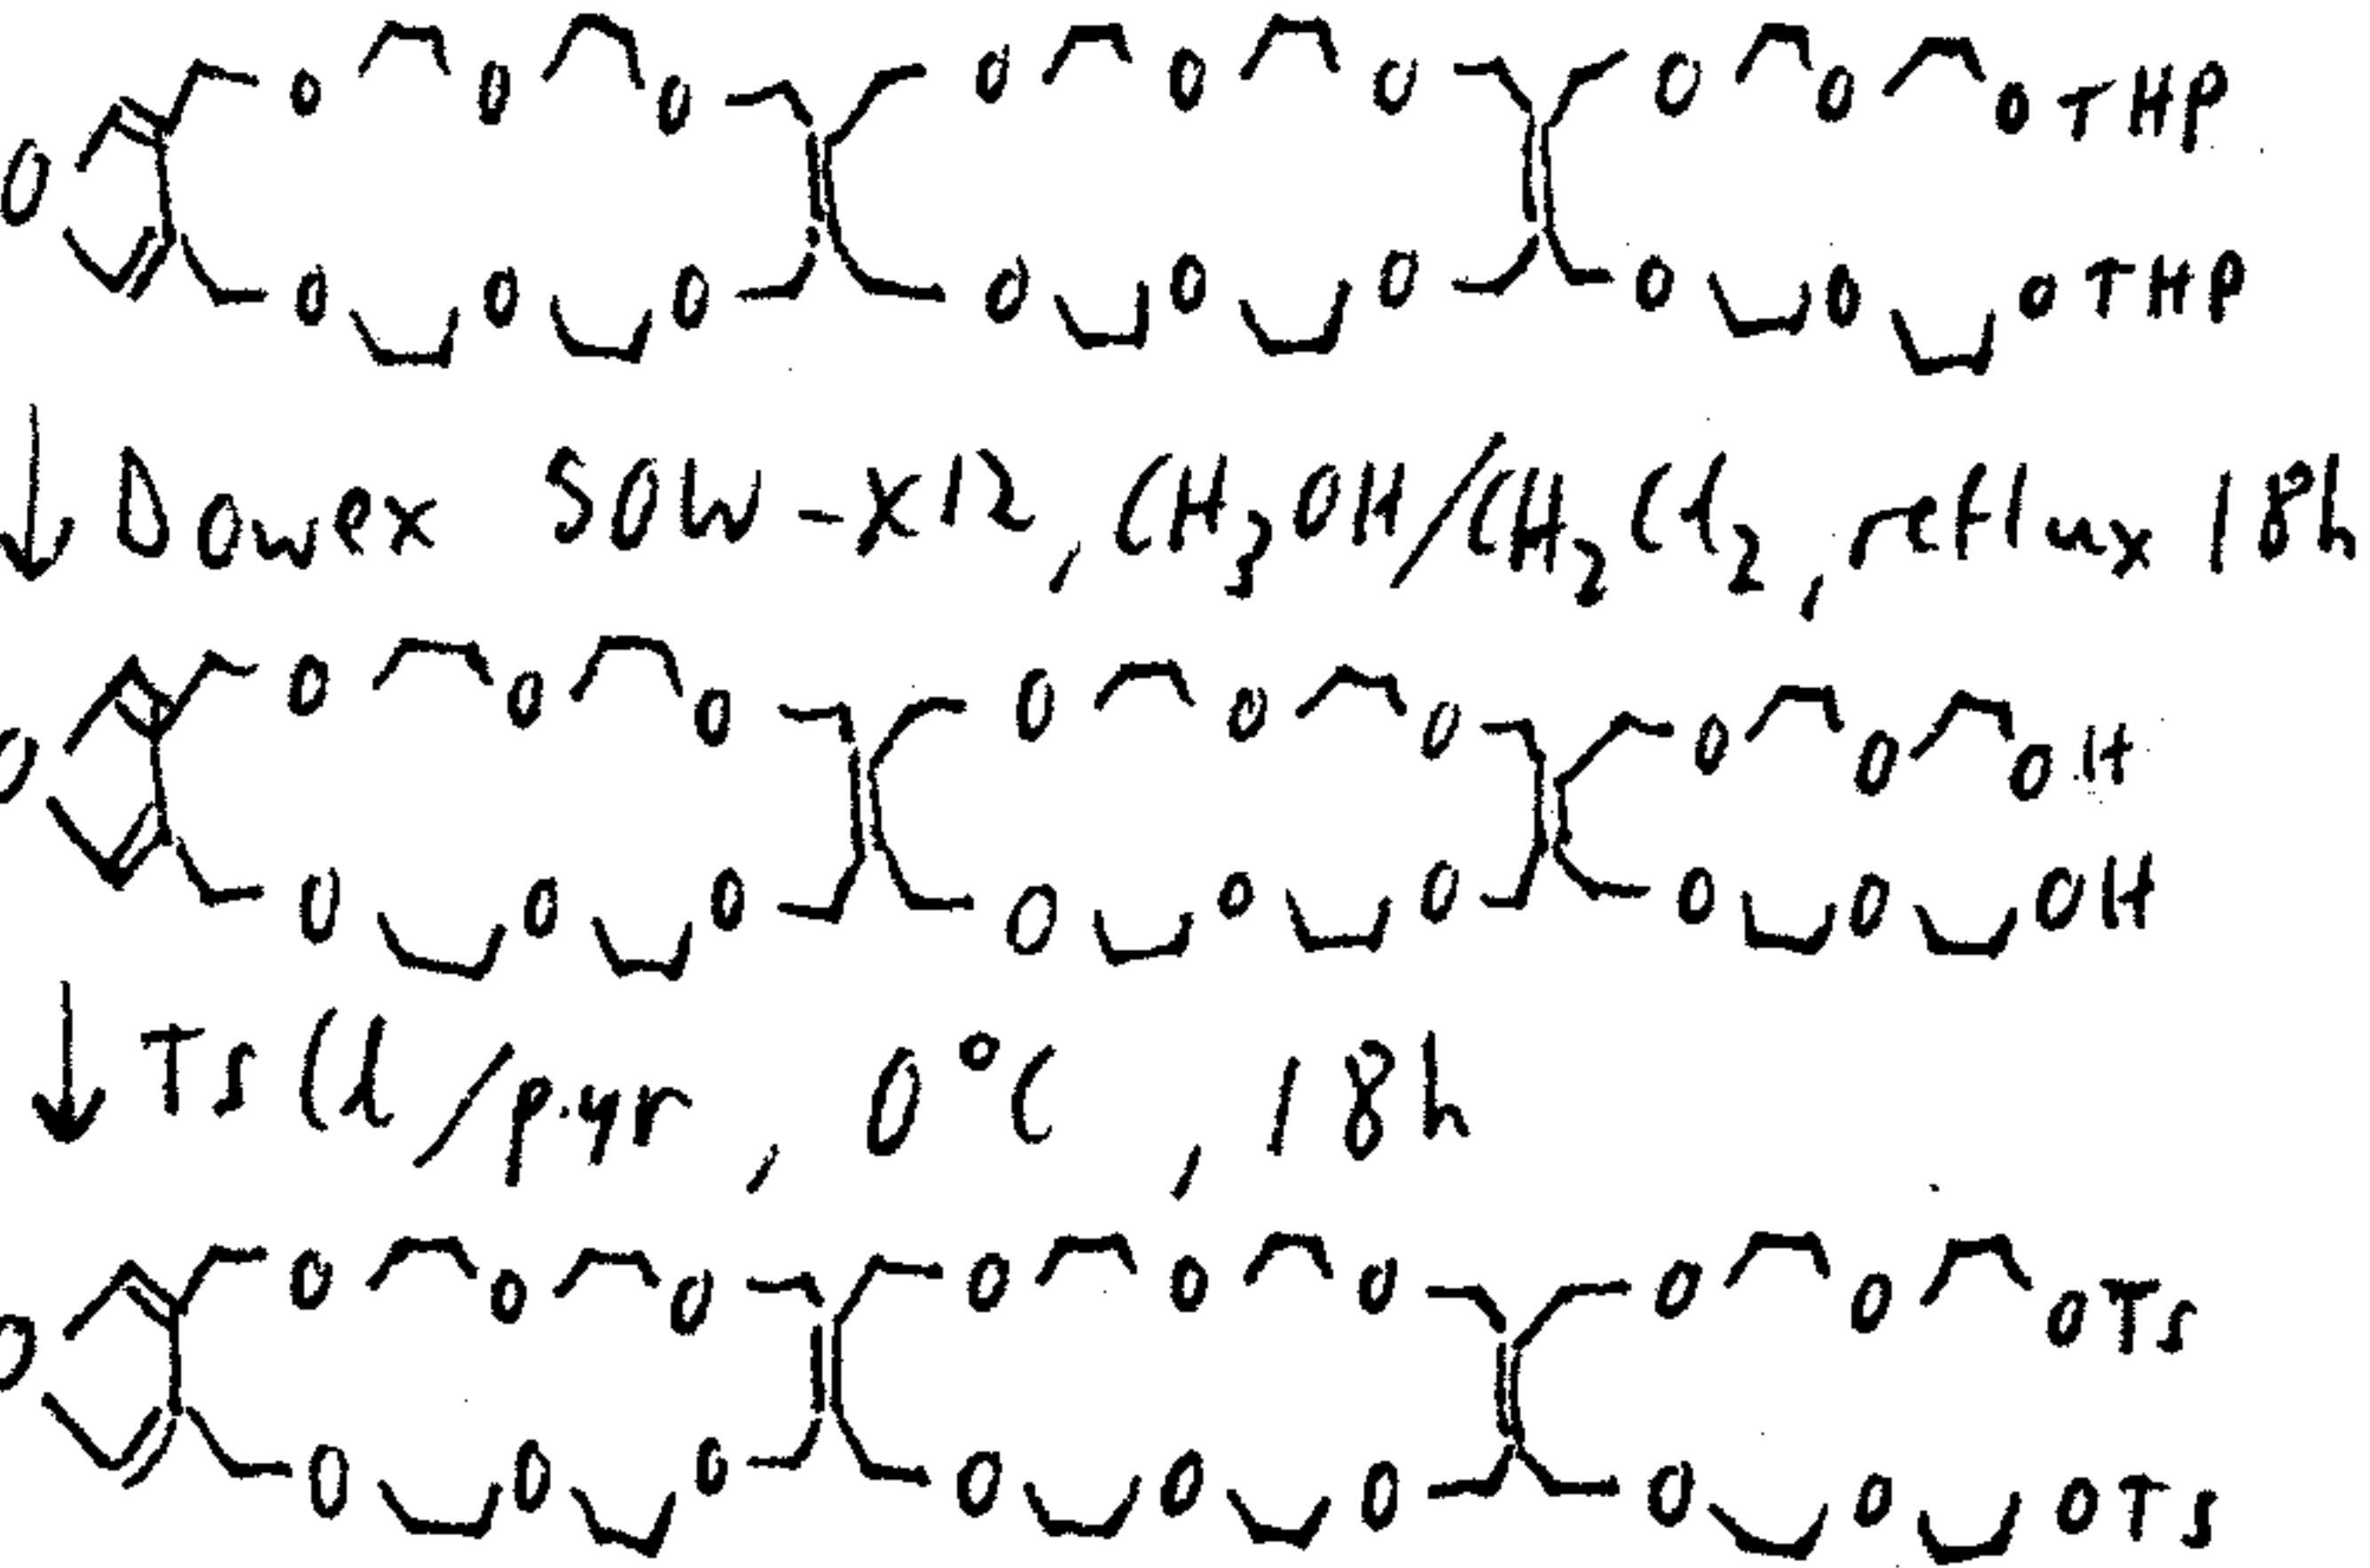 O O O O O O O O OTHP
O
O O O O O O O O OTHP
↓ Dowex 50W-X12, CH3OH/CH2Cl2, reflux 18h
O O O O O O O O OH
O
O O O O O O O O OH
↓ TsCl/pyr, 0°C, 18h
O O O O O O O O OTs
O
O O O O O O O O OTs